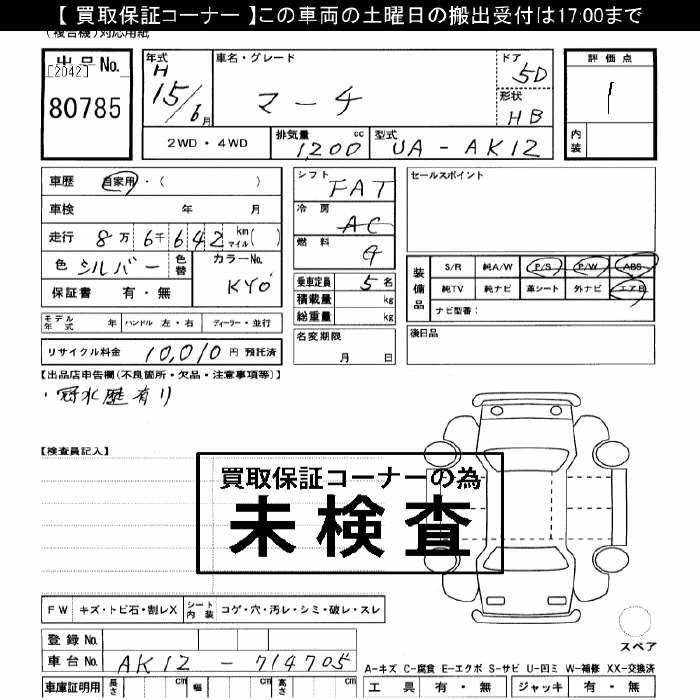 【 買取保証コーナー 】この車両の土曜日の搬出受付は17:00まで
(複合機)対応用紙
出品No.
[2042]
80785
年式 H 15/6月
車名・グレード
マーチ
ドア 5D
形状 HB
評価点
1
内装
2WD・4WD
排気量 1,200 cc
型式 UA-AK12
車歴 自家用・( )
車検 年 月
走行 8万6千642 km マイル( )
色 シルバー
色替
カラーNo. KY0
保証書 有・無
シフト FAT
冷房 AC
燃料
乗車定員 5名
積載量 kg
総重量 kg
セールスポイント
装備品
S/R 純A/W P/S P/W ABS
純TV 純ナビ 革シート 外ナビ エアB
ナビ型番:
モデル年式 年 ハンドル 左・右 ディーラー・並行
名変期限
月 日
後日品
リサイクル料金 10,010円 預託済
【出品店申告欄(不良箇所・欠品・注意事項等)】
・冠水歴有り
【検査員記入】
買取保証コーナーの為
未検査
FW キズ・トビ石・割レX シート内装 コゲ・穴・汚レ・シミ・破レ・スレ
スペア
登録No.
車台No. AK12-714705
A-キズ C-腐食 E-エクボ S-サビ U-凹ミ W-補修 XX-交換済
車庫証明用 長さ cm 幅 cm 高さ cm
工具 有・無 ジャッキ 有・無